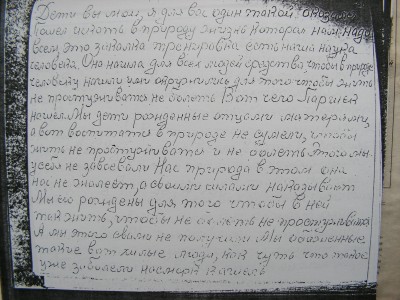 Дети вы мои, я для вас один такой оказался
Пошел искать в природу жизнь Которая нам надо
всем. Это закалка тренировка есть наша наука
человека. Она нашла для всех людей средства, чтобы в природе
человеку нашли им окружились для того чтобы жить
не простуживать не болеть Вот чего Паршек
нашел. Мы дети рожденные отцами матерями,
а вот воспитати в природе не сумели, чтобы
жить не простуживати и не болеть Этого мы
себе не завоевали Нас природа в этом она
нас не жалеет, а своими силами наказывает
Мы ею рождены для того чтобы в ней
так жить, чтобы не болеть не простуживать
А мы этого с вами не получили Мы
такие вот хилые люди, как чуть что такое
уже заболели насморк